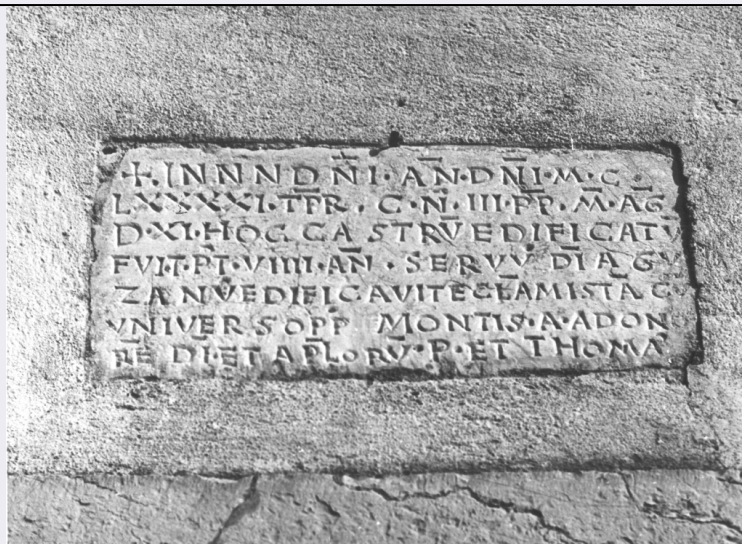 +. INNNDN̄I · AN̄ · DN̄I · M · C ·
LXXXXI · TP̄R · C · N̄ · III · P̄P · M̄ · AḠ
D · XI · HOC CASTRV̄ EDIFICATV̄
FVIT · PT · VIIII · AN̄ · SERVV DĪ AGV
ZANV̄ EDIFICAVIT ECL̄A MISTĀ C
VNIVERSO PP MONTIS · A · ADON
RĒ DĪ · ET AP̄LORV̄ · P · ET THOMA